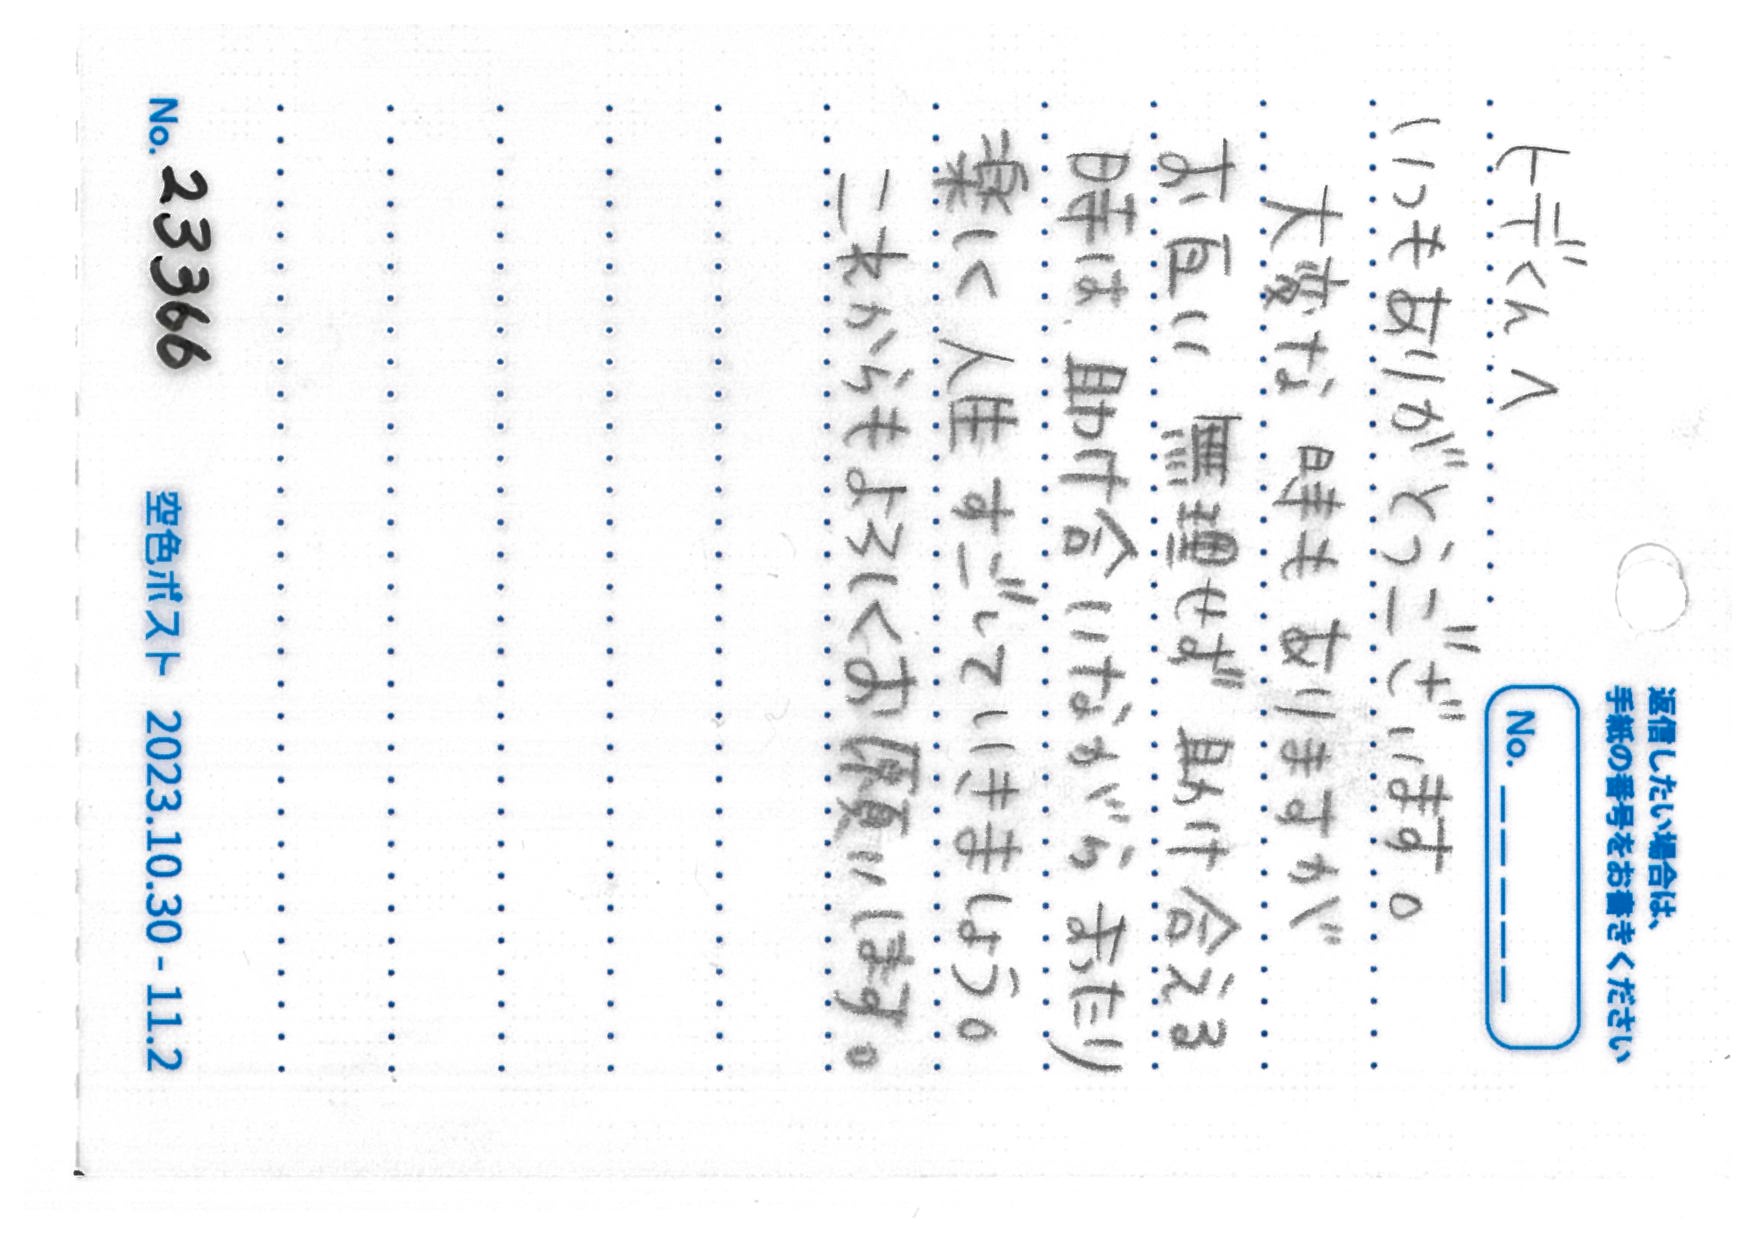 返信したい場合は、
手紙の番号をお書きください
No. _ _ _ _ _
ヒデくんへ
いつもありがとうございます。
大変な時もありますが
お互い無理せず助け合える
時は、助け合いながらまったり
楽しく人生すごしていきましょう。
これからもよろしくお願いします。
No. 23366
空色ポスト 2023.10.30 - 11.2